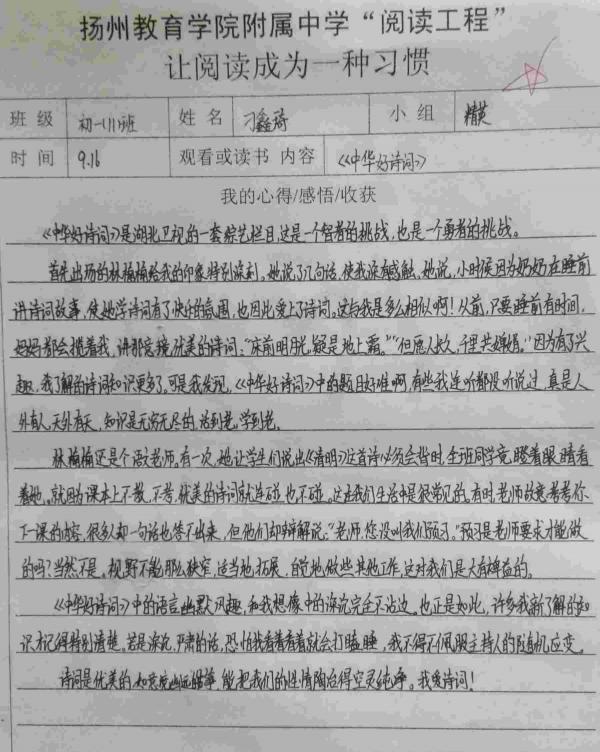 扬州教育学院附属中学“阅读工程”
让阅读成为一种习惯
班 级 初一(11)班 姓 名 刁鑫琦 小 组 精英
时 间 9.16 观看或读书 内容 《中华好诗词》
我的心得/感悟/收获
《中华好诗词》是湖北卫视的一套综艺栏目,这是一个智者的挑战,也是一个勇者的挑战。
首先出场的林楠楠给我的印象特别深刻。她说了几句话,使我深有感触。她说,小时候因为奶奶在睡前
讲诗词故事,使她学诗词有了快乐的氛围,也因此爱上了诗词。这与我是多么相似啊!以前,只要睡前有时间,
妈妈都会搅着我,讲那意境优美的诗词:“床前明月光,疑是地上霜。”“但愿人长久,千里共婵娟。”因为有了兴
趣,我了解的诗词知识更多了。可是我发现,《中华好诗词》中的题目好难啊,有些我连听都没听说过,真是人
外有人,天外有天,知识是无穷无尽的,活到老,学到老。
林楠楠还是个语文老师。有一次,她让学生们说出《清明》这首诗必须会背时,全班同学竟瞪着眼睛看
着她。就因为课本上不教,不考,优美的诗词就连碰也不碰。这在我们生活中是很常见的。有时老师故意考考你
下一课的内容,很多人却一句话也答不出来,但他们却辩解说:“老师,您没叫我们预习。”预习是老师要求才能做
的吗?当然不是。视野不能那么狭窄,适当地拓展,自觉地做些其他工作,这对我们是大有裨益的。
《中华好诗词》中的语言幽默风趣,和我想像中的深沉完全不沾边。也正是如此,许多我新了解的知
识才记得特别清楚。若是深沉,严肃的话,恐怕我看着看着就会打瞌睡。我不得不佩服主持人的随机应变。
诗词是优美的,如意境幽远的,能把我们的性情陶冶得空灵纯净。我爱诗词!